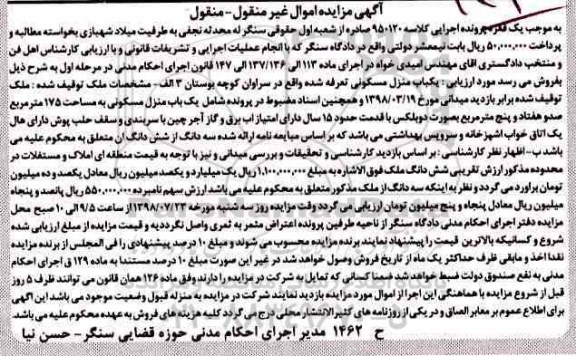 آگهی مزایده اموال غیر منقول- منقول
به موجب یک فقره پرونده اجرایی کلاسه ۹۵۰۱۲۰ صادره از شعبه اول حقوقی سنگر له محدثه نجفی به طرفیت میلاد شهبازی بخواسته مطالبه و
پرداخت ۵۰,۰۰۰,۰۰۰ ریال بابت نیمعشر دولتی واقع در دادگاه سنگر که با انجام عملیات اجرایی و تشریفات قانونی و با ارزیابی کارشناس اهل فن
و منتخب دادگستری اقای مهندس امیدی خواه در اجرای ماده ۱۱۳ الی ۱۳۷/۱۳۶ الی ۱۴۷ قانون اجرای احکام مدنی در مرحله اول به شرح ذیل
بفروش می رسد مورد ارزیابی : یکباب منزل مسکونی تعرفه شده واقع در سراوان کوچه بوستان ۳ الف - مشخصات ملک توقیف شده : ملک
توقیف شده برابر بازدید میدانی مورخ ۱۳۹۸/۰۳/۱۹ و همچنین اسناد مضبوط در پرونده شامل یک باب منزل مسکونی به مساحت ۱۷۵ مترمربع
صدو هفتاد و پنج مترمربع بصورت دوبلکس با قدمت حدود ۱۵ سال دارای امتیاز اب برق و گاز آجر چین با سربندی و سقف حلب پوش دارای هال
یک اتاق خواب اشپزخانه و سرویس بهداشتی می باشد که بر اساس مبایعه نامه ارائه شده سه دانگ از شش دانگ ان متعلق به محکوم علیه می
باشد ب- اظهار نظر کارشناسی : بر اساس بازدید کارشناسی و تحقیقات و بررسی میدانی و نیز با توجه به قیمت منطقه ای املاک و مستغلات در
محدوده مذکور ارزش تقریبی شش دانگ ملک فوق الاشاره به مبلغ ۱,۱۰۰,۰۰۰,۰۰۰ ریال یک میلیارد و یکصد میلیون ریال معادل یکصد و ده میلیون
تومان براورد می گردد و نظر به اینکه سه دانگ از ملک مذکور متعلق به محکوم علیه می باشد ارزش سهم نامبرده ۵۵۰,۰۰۰,۰۰۰ ریال پانصد و پنجاه
میلیون ریال معادل پنجاه و پنج میلیون تومان ارزیابی می گردد وقت مزایده روز سه شنبه مورخه ۱۳۹۸/۰۷/۲۳ از ساعت ۹/۵ الی ۱۰ صبح محل
مزایده دفتر اجرای احکام مدنی دادگاه سنگر از ناحیه طرفین پرونده اعتراض مثمر به ثمری واصل نگردیده و قیمت مزایده از مبلغ ارزیابی شده
شروع و کسانیکه بالاترین قیمت را پیشنهاد نمایند برنده مزایده محسوب می شوند و مبلغ ۱۰ درصد پیشنهادی را فی المجلس از برنده مزایده
نقدا اخذ و مابقی ظرف حداکثر یک ماه از تاریخ فروش وصول خواهد شد در غیر این صورت مبلغ ۱۰ درصد مستندا به ماده ۱۲۹ ق اجرای احکام
مدنی به نفع صندوق دولت ضبط خواهد شد ضمنا کسانی که تمایل به شرکت در مزایده را دارند وفق ماده ۱۲۶ همان قانون می توانند ظرف ۵ روز
قبل از شروع مزایده با هماهنگی این اجرا از اموال مورد مزایده بازدید نمایند شرکت در مزایده به منزله قبول وضعیت موجود می باشد این آگهی
برای اطلاع عموم بر معابر الصاق و در یکی از روزنامه های کثیر الانتشار محلی درج می گردد کلیه هزینه های فروش به عهده محکوم علیه می باشد
ح ۱۴۶۲ مدیر اجرای احکام مدنی حوزه قضایی سنگر - حسن نیا